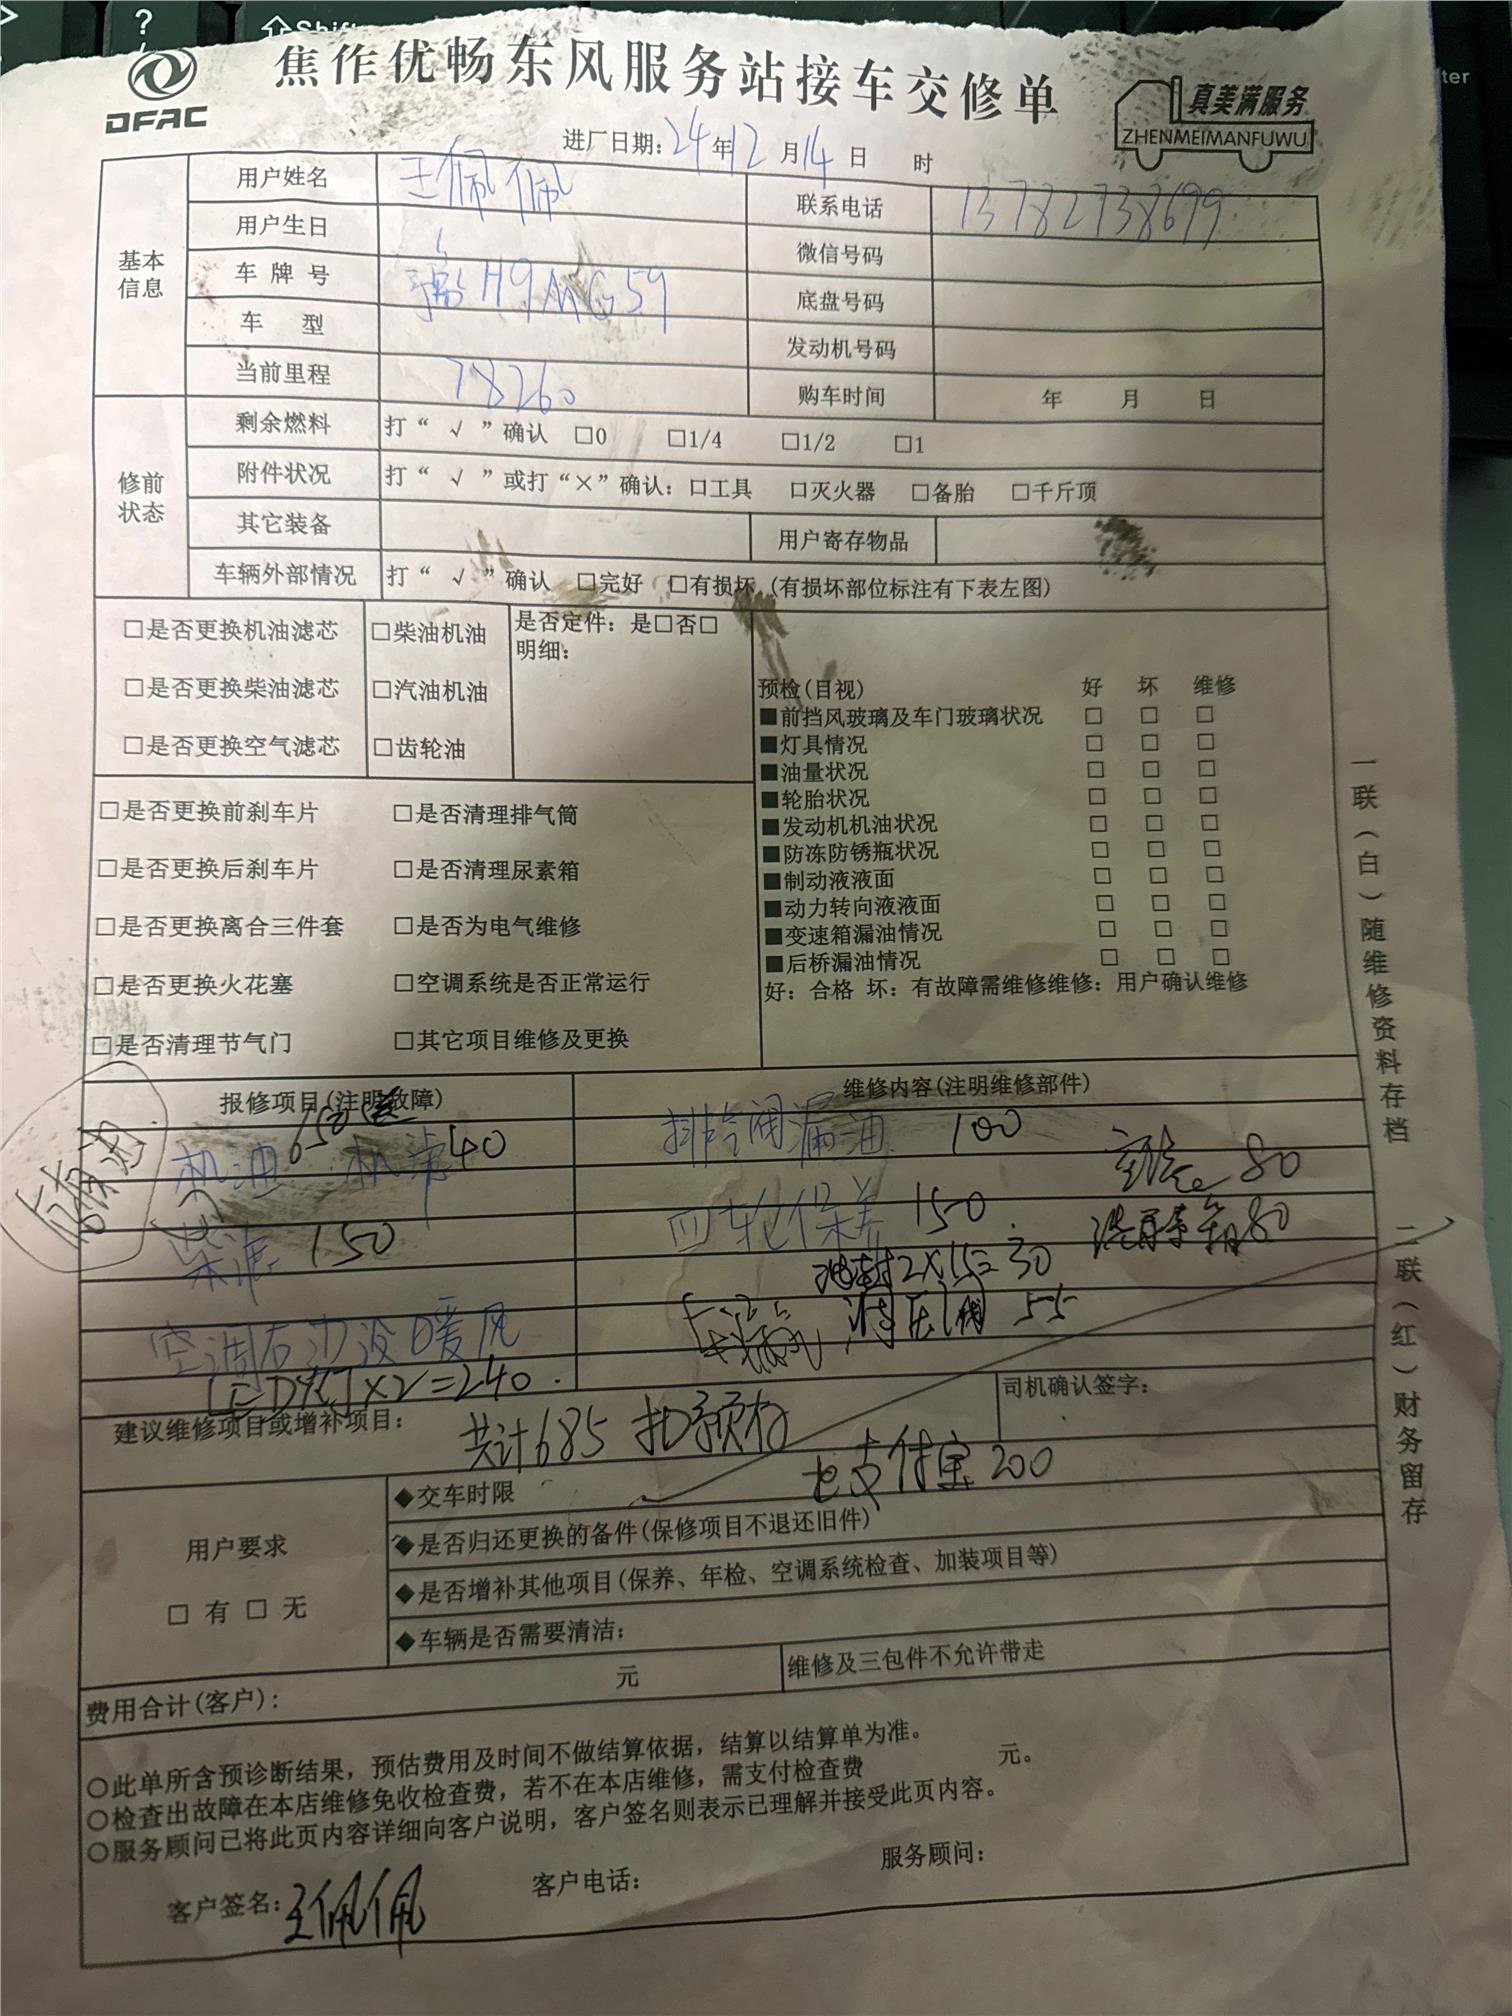 ?
Shift
ter
DFAC
焦作优畅东风服务站接车交修单
真美满服务
ZHENMEIMANFUWU
进厂日期: 24 年 12 月 14 日 时
基本信息
用户姓名 王佩佩 联系电话 13782738699
用户生日 微信号码
车牌号 豫H9MG59 底盘号码
车 型 发动机号码
当前里程 78260 购车时间 年 月 日
修前状态
剩余燃料 打“ √ ”确认 □0 □1/4 □1/2 □1
附件状况 打“ √ ”或打“×”确认: □工具 □灭火器 □备胎 □千斤顶
其它装备 用户寄存物品
车辆外部情况 打“ √ ”确认 □完好 □有损坏 (有损坏部位标注有下表左图)
□是否更换机油滤芯 □柴油机油 是否定件: 是□否□
明细:
□是否更换柴油滤芯 □汽油机油
□是否更换空气滤芯 □齿轮油
预检(目视) 好 坏 维修
■前挡风玻璃及车门玻璃状况 □ □ □
■灯具情况 □ □ □
■油量状况 □ □ □
■轮胎状况 □ □ □
■发动机机油状况 □ □ □
■防冻防锈瓶状况 □ □ □
■制动液液面 □ □ □
■动力转向液液面 □ □ □
■变速箱漏油情况 □ □ □
■后桥漏油情况 □ □ □
好: 合格 坏: 有故障需维修维修: 用户确认维修
□是否更换前刹车片 □是否清理排气筒
□是否更换后刹车片 □是否清理尿素箱
□是否更换离合三件套 □是否为电气维修
□是否更换火花塞 □空调系统是否正常运行
□是否清理节气门 □其它项目维修及更换
报修项目(注明故障) 维修内容(注明维修部件)
机油 650 机滤 40 排气阀漏油 100
80
柴滤 150 四轮保养 150 洗尿素箱 80
油封 2×15=30
空调右边没暖风 55
LED灯×2=240.
建议维修项目或增补项目: 共计685 扣预存 司机确认签字:
支付宝200
用户要求
□ 有 □ 无
◆交车时限
◆是否归还更换的备件(保修项目不退还旧件)
◆是否增补其他项目(保养、年检、空调系统检查、加装项目等)
◆车辆是否需要清洁:
费用合计(客户): 元 维修及三包件不允许带走
○此单所含预诊断结果，预估费用及时间不做结算依据，结算以结算单为准。
○检查出故障在本店维修免收检查费，若不在本店维修，需支付检查费 元。
○服务顾问已将此页内容详细向客户说明，客户签名则表示已理解并接受此页内容。
客户签名: 王佩佩 客户电话: 服务顾问:
一联(白)随维修资料存档
二联(红)财务留存